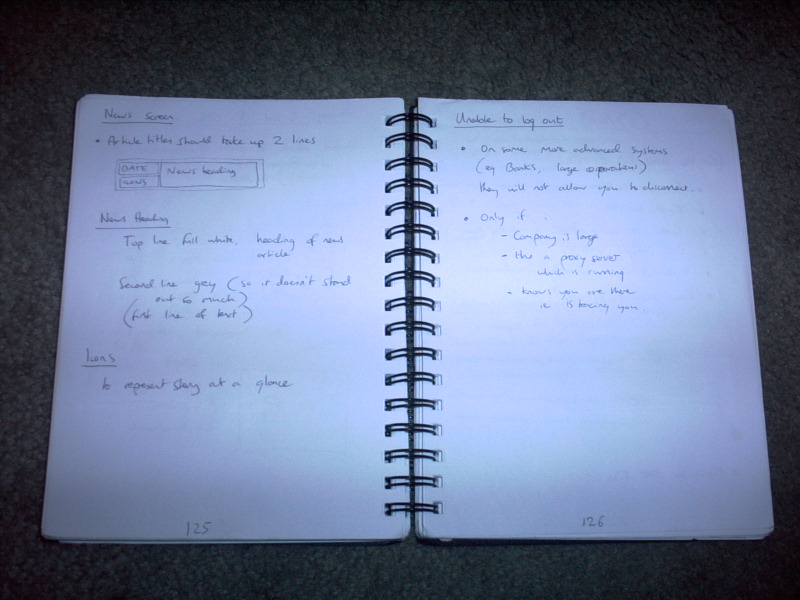 News Screen
• Article titles should take up 2 lines
DATE
ICONS
News heading
News Heading
Top line full white, heading of news
article
Second line grey (so it doesn't stand
out so much)
(first line of text)
Icons
to represent story at a glance
125
Unable to log out
• On some more advanced systems
(eg Banks, large corporations)
they will not allow you to disconnect.
• Only if :
- Company is large
- this a proxy server
which is running
- knows you are there
ie is tracing you.
126